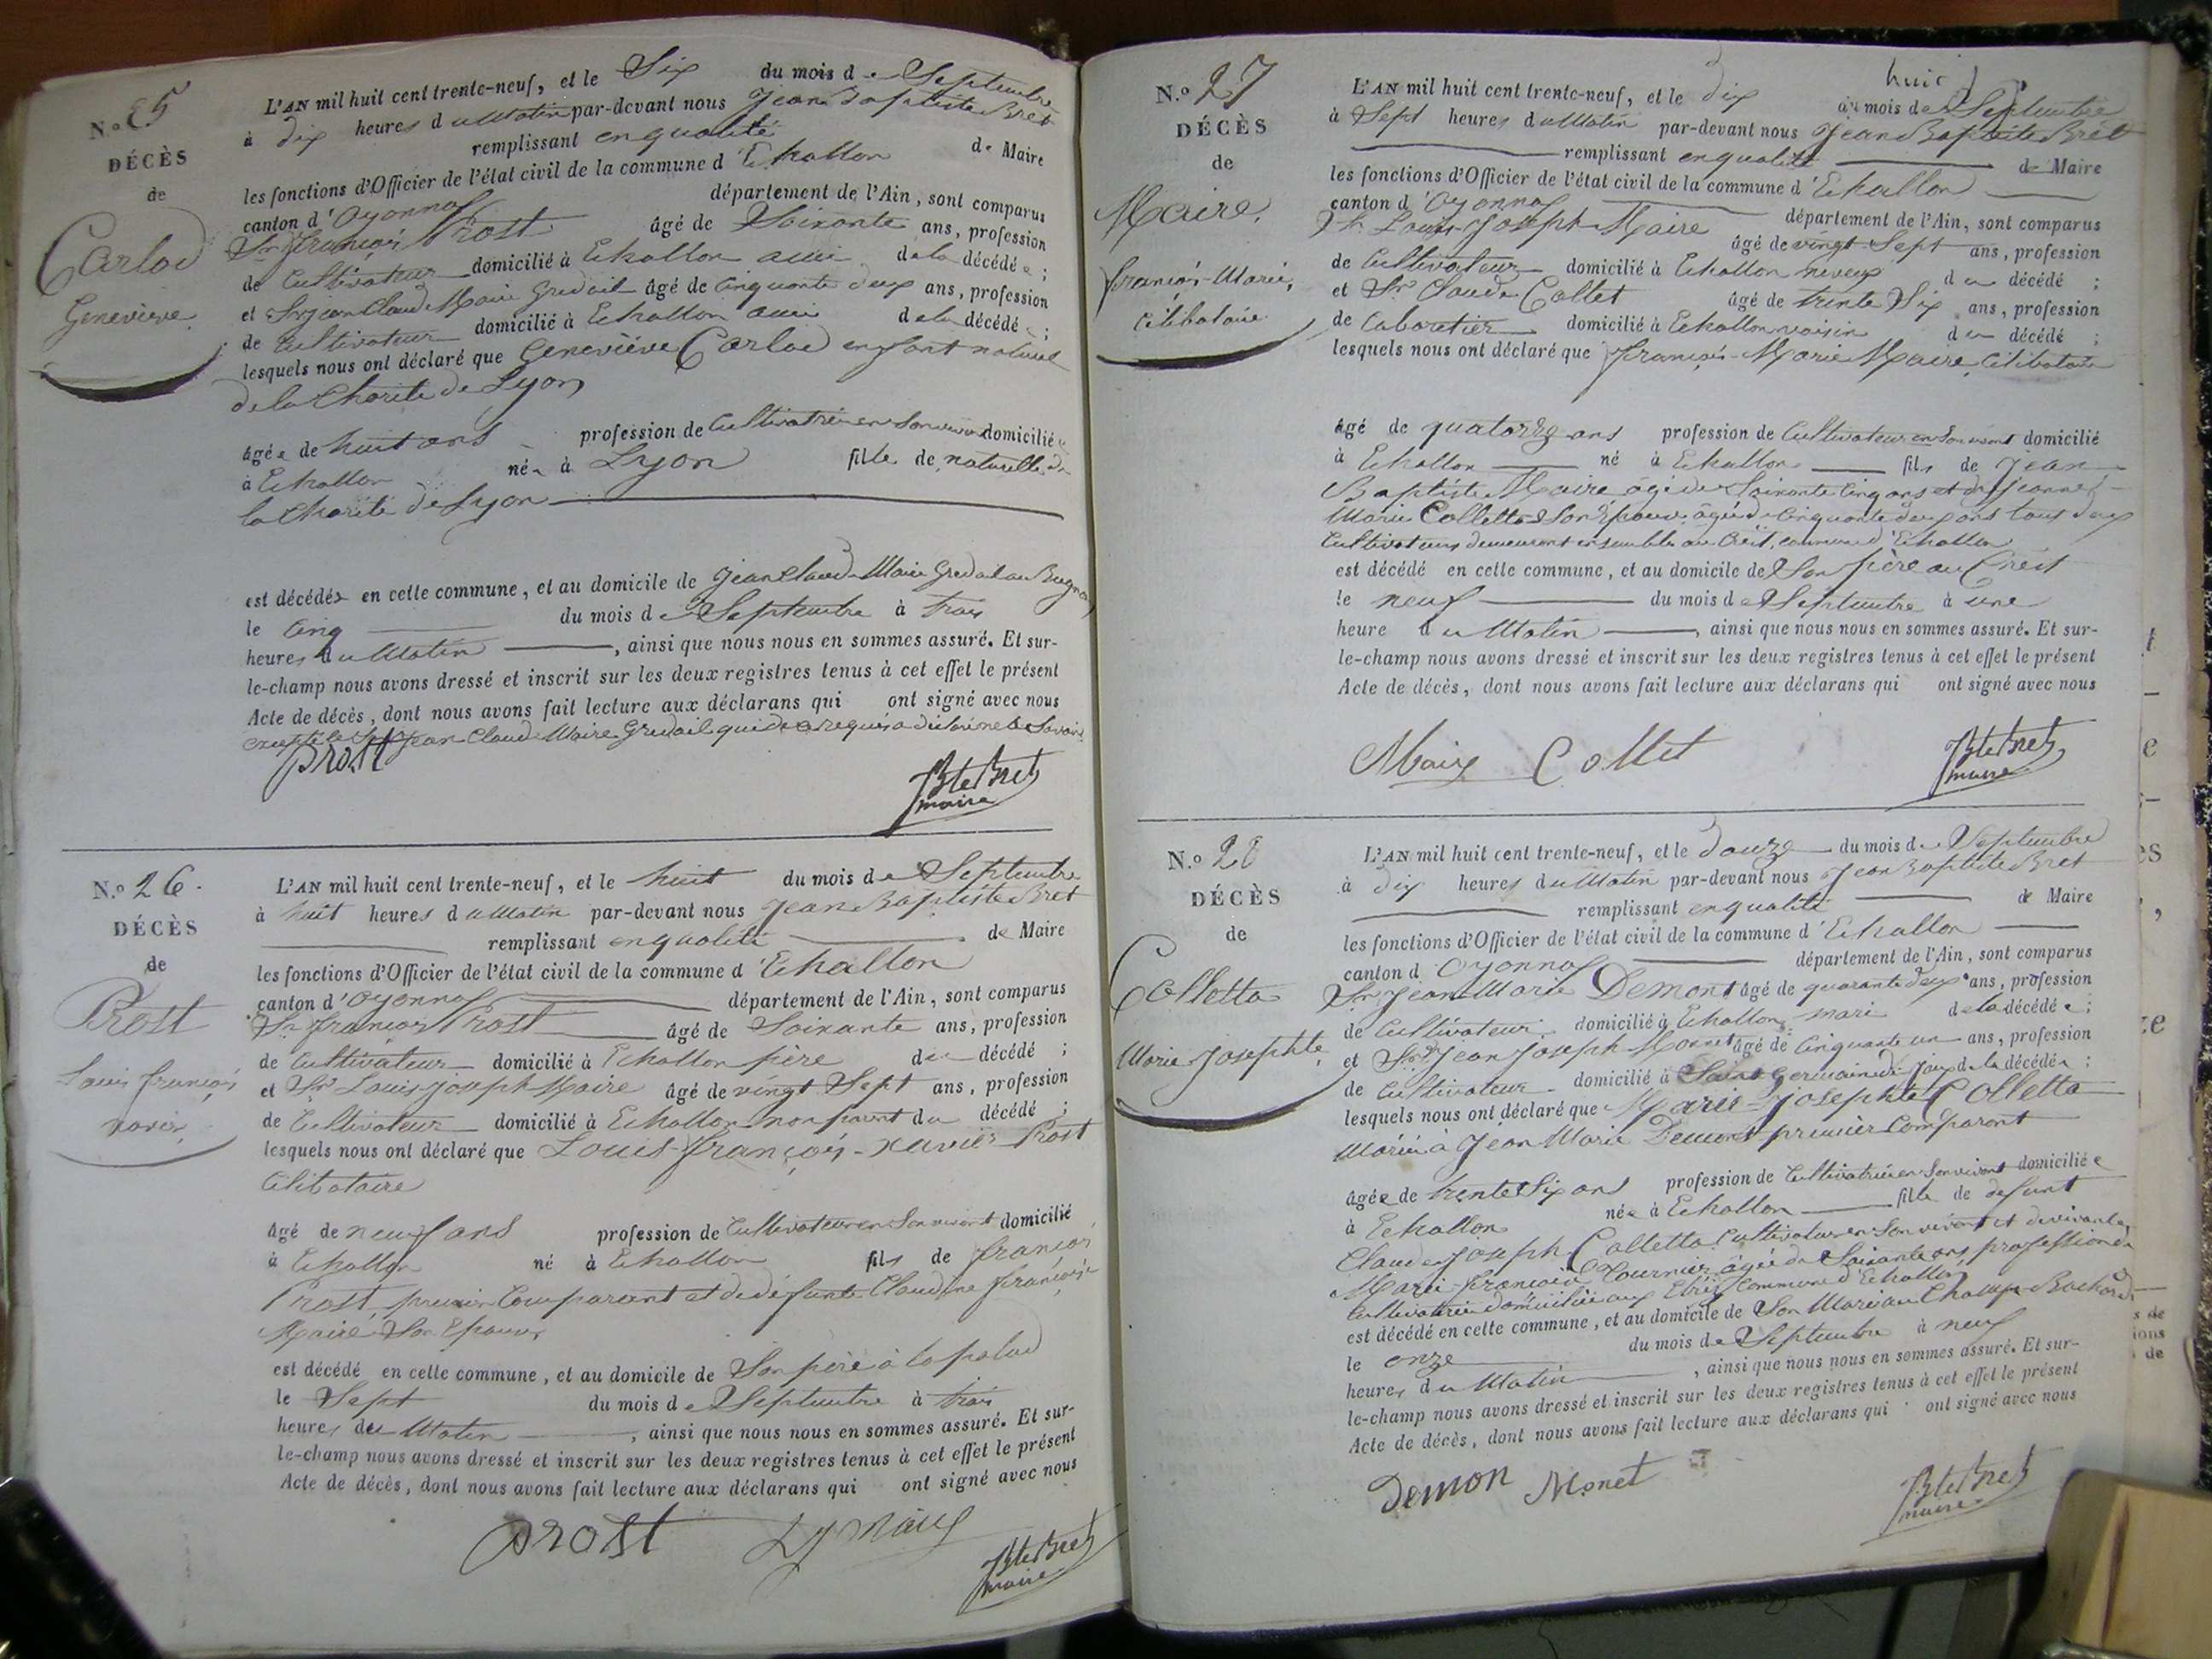 N.o 25
DÉCÈS
de
Carlod
Geneviève
L'AN mil huit cent trente-neuf, et le Six du mois de Septembre
à dix heures du Matin par-devant nous Jean Baptiste Bret
remplissant en qualité de Maire
les fonctions d'Officier de l'état civil de la commune d'Echallon
canton d'Oyonnax département de l'Ain, sont comparus
Sr françois Prost âgé de Soixante ans, profession
de Cultivateur domicilié à Echallon ami de la décédée ;
et Sr jean Claude Maire Gredail âgé de Cinquante deux ans, profession
de Cultivateur domicilié à Echallon ami de la décédée ;
lesquels nous ont déclaré que Geneviève Carlod enfant naturel
de la Charité de Lyon
âgée de huit ans profession de Cultivatrice en Son vivant domiciliée
à Echallon née à Lyon fille de naturelle de
la Charité de Lyon
est décédée en cette commune, et au domicile de Jean Claude Maire Gredail au
le Cinq du mois de Septembre à trois
heures du Matin, ainsi que nous nous en sommes assuré. Et sur-
le-champ nous avons dressé et inscrit sur les deux registres tenus à cet effet le présent
Acte de décès, dont nous avons fait lecture aux déclarans qui ont signé avec nous
excepté le Sr Jean Claude Maire Gredail qui de ce requis a dit ne le Savoir
Prost
Bte Bret
maire
N.o 26.
DÉCÈS
de
Prost
Louis françois
xavier
L'AN mil huit cent trente-neuf, et le huit du mois de Septembre
à huit heures du Matin par-devant nous Jean Baptiste Bret
remplissant en qualité de Maire
les fonctions d'Officier de l'état civil de la commune d'Echallon
canton d'Oyonnax département de l'Ain, sont comparus
Sr françois Prost âgé de Soixante ans, profession
de Cultivateur domicilié à Echallon père du décédé ;
et Sr Louis joseph Maire âgé de vingt Sept ans, profession
de Cultivateur domicilié à Echallon non parent du décédé ;
lesquels nous ont déclaré que Louis-françois-xavier Prost
Célibataire
âgé de neuf ans profession de Cultivateur en Son vivant domicilié
à Echallon né à Echallon fils de françois
Prost, premier Comparant et de défunte Claudine françoise
Maire Son Epouse
est décédé en cette commune, et au domicile de Son père à la palud
le Sept du mois de Septembre à trois
heures du Matin, ainsi que nous nous en sommes assuré. Et sur-
le-champ nous avons dressé et inscrit sur les deux registres tenus à cet effet le présent
Acte de décès, dont nous avons fait lecture aux déclarans qui ont signé avec nous
Prost
Bte Bret
maire
N.o 27
DÉCÈS
de
Maire,
françois-Marie,
Célibataire
huit
L'AN mil huit cent trente-neuf, et le dix du mois de Septembre
à Sept heures du Matin par-devant nous Jean Baptiste Bret
remplissant en qualité de Maire
les fonctions d'Officier de l'état civil de la commune d'Echallon
canton d'Oyonnax département de l'Ain, sont comparus
Sr Louis-Joseph Maire âgé de vingt-Sept ans, profession
de Cultivateur domicilié à Echallon neveux du décédé ;
et Sr Claude Collet âgé de trente Six ans, profession
de Cabaretier domicilié à Echallon voisin du décédé ;
lesquels nous ont déclaré que françois-Marie Maire, Célibataire
âgé de quatorze ans profession de Cultivateur en Son vivant domicilié
à Echallon né à Echallon fils de Jean
Baptiste Maire âgé de Soixante Cinq ans et de Jeanne
Marie Colletta Son Epouse, âgée de Cinquante deux ans tous deux
Cultivateurs demeurant ensemble au Crêt, commune d'Echallon
est décédé en cette commune, et au domicile de Son père au Crêt
le neuf du mois de Septembre à une
heure du Matin, ainsi que nous nous en sommes assuré. Et sur-
le-champ nous avons dressé et inscrit sur les deux registres tenus à cet effet le présent
Acte de décès, dont nous avons fait lecture aux déclarans qui ont signé avec nous
Maire Collet
Bte Bret
maire
N.o 28
DÉCÈS
de
Colletta
Marie Josephte
L'AN mil huit cent trente-neuf, et le douze du mois de Septembre
à dix heures du Matin par-devant nous Jean Baptiste Bret
remplissant en qualité de Maire
les fonctions d'Officier de l'état civil de la commune d'Echallon
canton d'Oyonnax département de l'Ain, sont comparus
Sr Jean Marie Demont âgé de quarante deux ans, profession
de Cultivateur domicilié à Echallon mari de la décédée ;
et Sr Jean Joseph Monet âgé de Cinquante un ans, profession
de Cultivateur domicilié à Saint Germain de joux de la décédée ;
lesquels nous ont déclaré que Marie-Josephte Colletta
Mariée à Jean Marie Demont premier Comparant
âgée de trente Six ans profession de Cultivatrice en Son vivant domiciliée
à Echallon née à Echallon fille de defunt
Claude Joseph Colletta Cultivateur en Son vivant et de vivante
Marie françoise Tournier âgée de Soixante ans, profession de
Cultivatrice domiciliée aux commune d'Echallon
est décédé en cette commune, et au domicile de Son Mari au Champ
le onze du mois de Septembre à neuf
heures du Matin, ainsi que nous nous en sommes assuré. Et sur-
le-champ nous avons dressé et inscrit sur les deux registres tenus à cet effet le présent
Acte de décès, dont nous avons fait lecture aux déclarans qui ont signé avec nous
Demon Monet
Bte Bret
maire